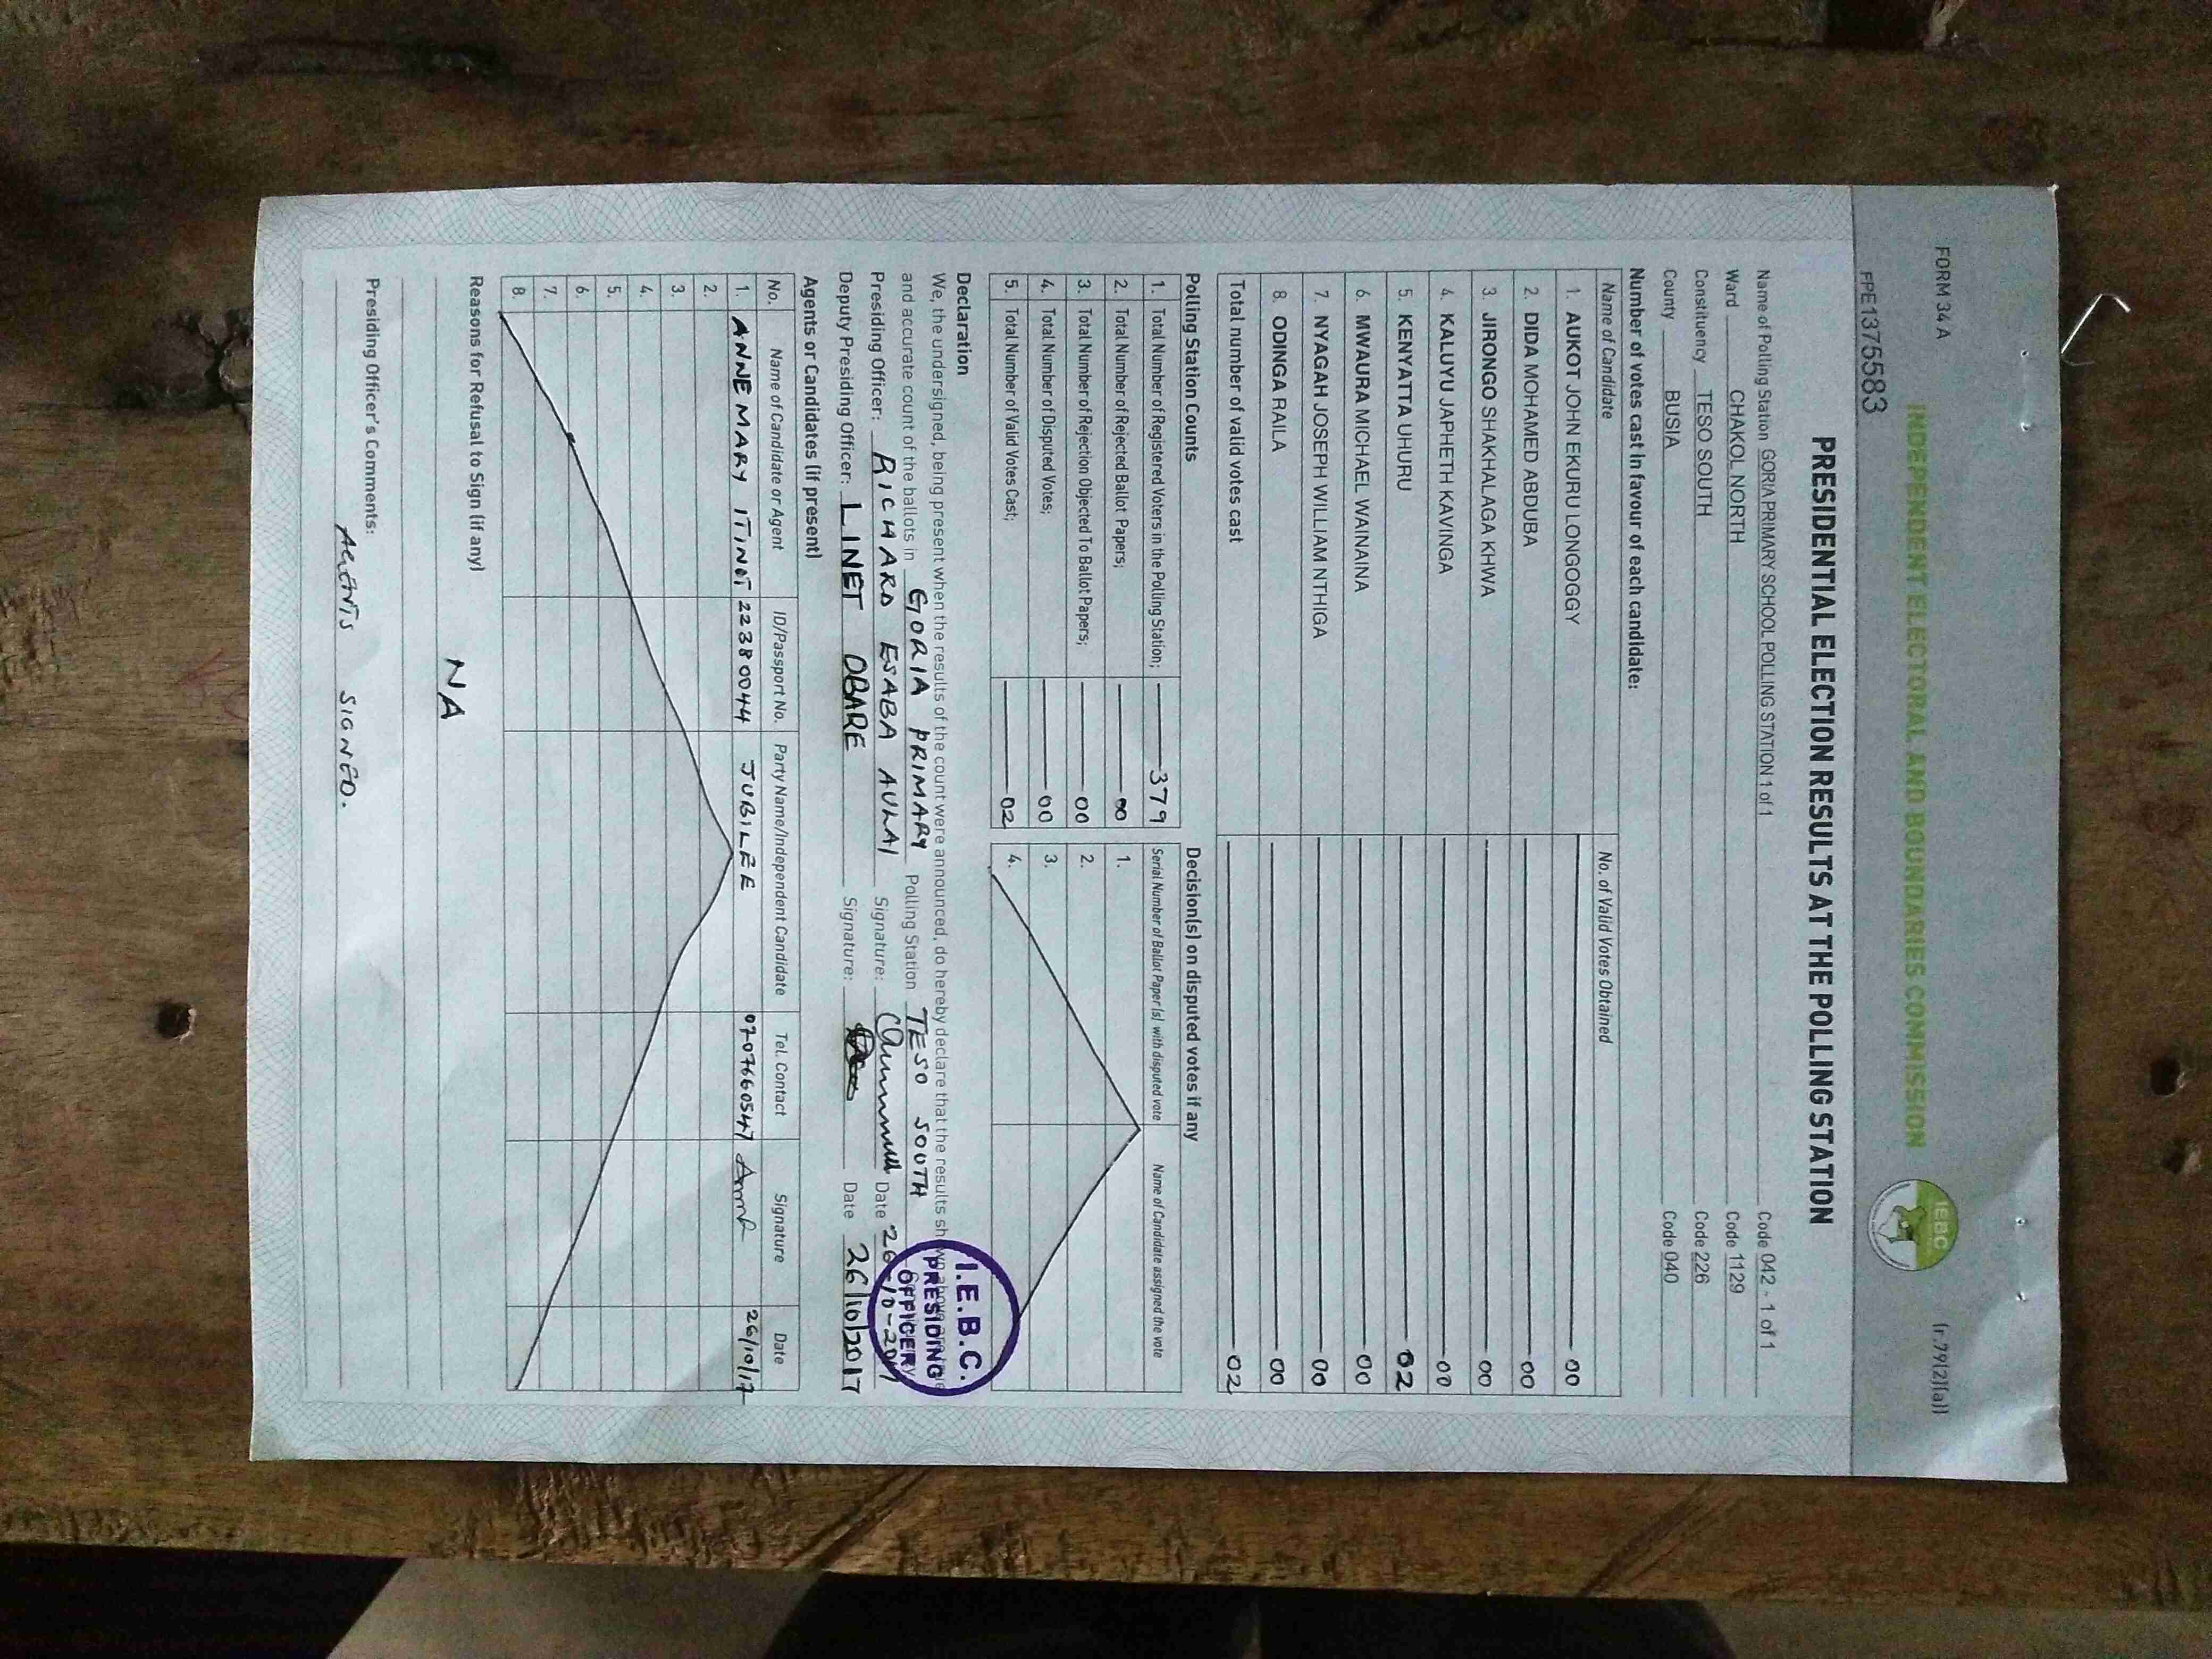 FORM 34 A
(r.79(2)(a))
INDEPENDENT ELECTORAL AND BOUNDARIES COMMISSION
IEBC
FPE1375583
PRESIDENTIAL ELECTION RESULTS AT THE POLLING STATION
Name of Polling Station GORIA PRIMARY SCHOOL POLLING STATION 1 of 1 Code 042 - 1 of 1
Ward CHAKOL NORTH Code 1129
Constituency TESO SOUTH Code 226
County BUSIA Code 040
Number of votes cast in favour of each candidate:
Name of Candidate No. of Valid Votes Obtained
1. AUKOT JOHN EKURU LONGOGGY 00
2. DIDA MOHAMED ABDUBA 00
3. JIRONGO SHAKHALAGA KHWA 00
4. KALUYU JAPHETH KAVINGA 00
5. KENYATTA UHURU 02
6. MWAURA MICHAEL WAINAINA 00
7. NYAGAH JOSEPH WILLIAM NTHIGA 00
8. ODINGA RAILA 00
Total number of valid votes cast 02
Polling Station Counts Decision(s) on disputed votes if any
1. Total Number of Registered Voters in the Polling Station; 379 Serial Number of Ballot Paper(s) with disputed vote Name of Candidate assigned the vote
2. Total Number of Rejected Ballot Papers; 00 1.
3. Total Number of Rejection Objected To Ballot Papers; 00 2.
4. Total Number of Disputed Votes; 00 3.
5. Total Number of Valid Votes Cast; 02 4.
Declaration
We, the undersigned, being present when the results of the count were announced, do hereby declare that the results
and accurate count of the ballots in GORIA PRIMARY Polling Station TESO SOUTH
Presiding Officer: RICHARD ESABA AULAI Signature: Date 26-10-2017
Deputy Presiding Officer: LINET OBARE Signature: Date 26/10/2017
I.E.B.C.
PRESIDING
OFFICER
Agents or Candidates (if present)
No. Name of Candidate or Agent ID/Passport No. Party Name/Independent Candidate Tel. Contact Signature Date
1. ANNE MARY ITINOT 22380044 JUBILEE 0707660547 26/10/17
2.
3.
4.
5.
6.
7.
8.
Reasons for Refusal to Sign (if any)
NA
Presiding Officer's Comments:
AGENTS SIGNED.